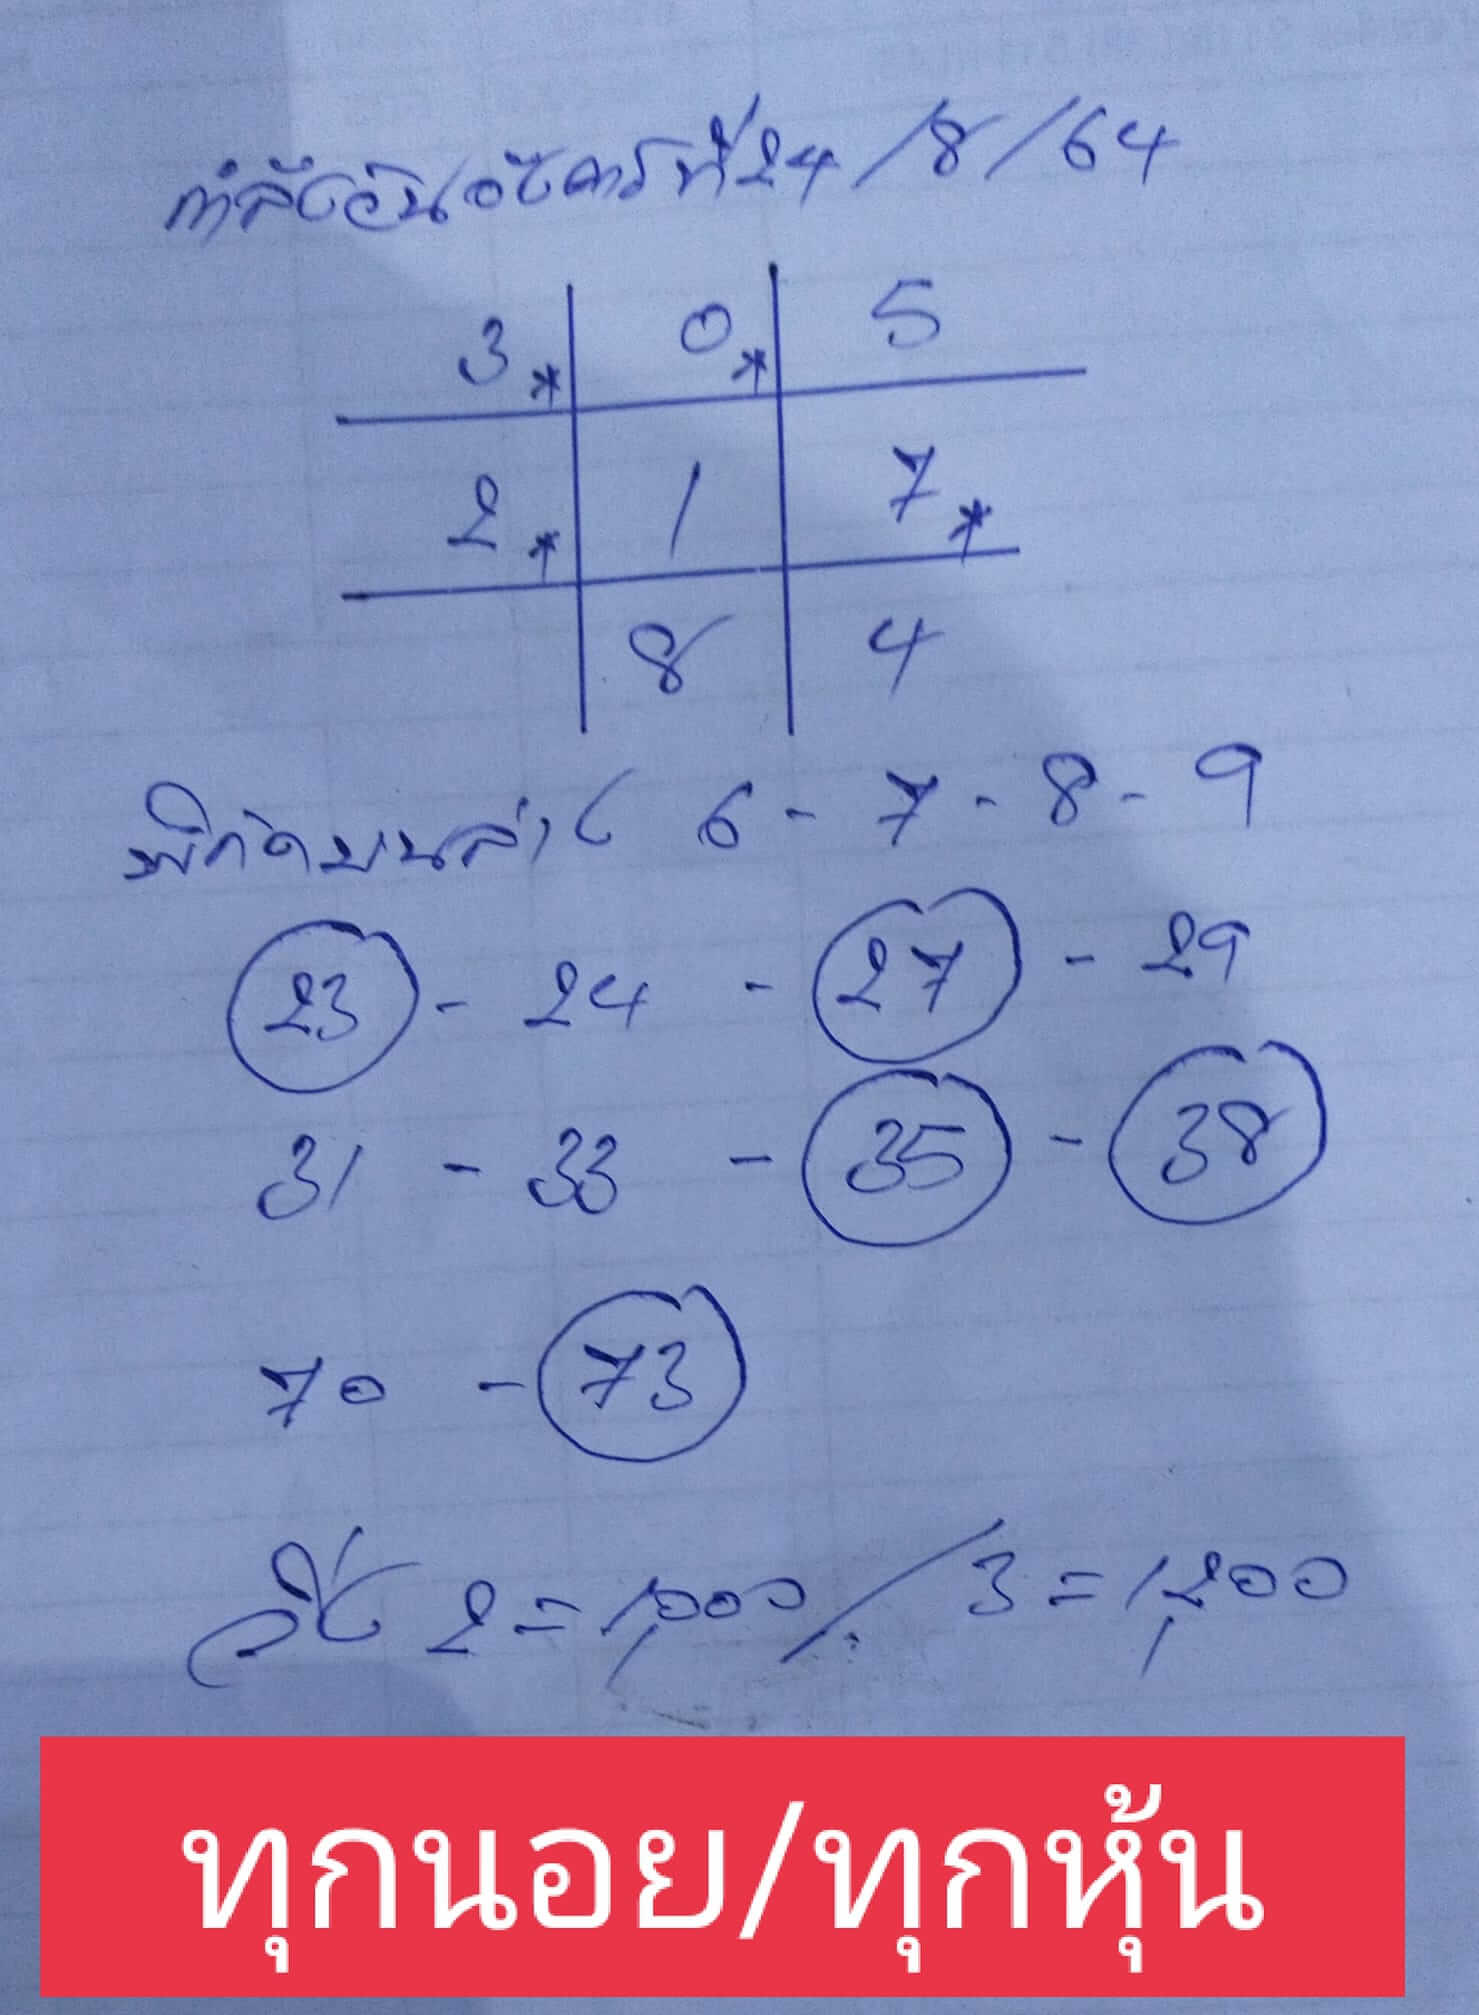 กำลังวันอังคารที่ 24/8/64
3* 0* 5
2* 1 7*
8 4
พิกัดบนล่าง 6-7-8-9
23 - 24 - 27 - 29
31 - 33 - 35 - 38
70 - 73
วิ่ง 2=1,000/3=1,200
ทุกนอย/ทุกหุ้น